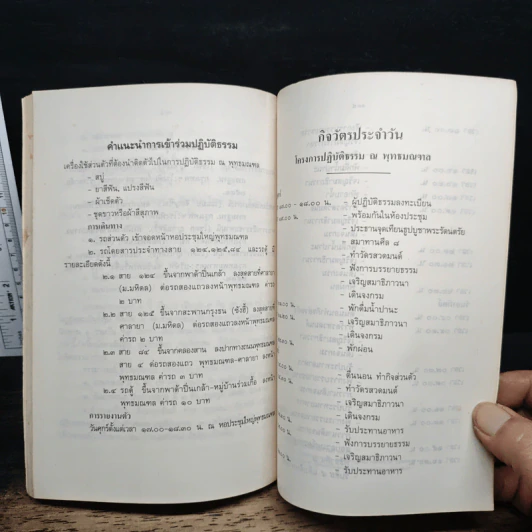 คำแนะนำการเข้าร่วมปฏิบัติธรรม
เครื่องใช้ส่วนตัวที่ต้องนำติดตัวไปในการปฏิบัติธรรม ณ พุทธมณฑล
- สบู่
- ยาสีฟัน, แปรงสีฟัน
- ผ้าเช็ดตัว
- ชุดขาวหรือผ้าสีสุภาพ
การเดินทาง
๑. รถส่วนตัว เข้าจอดหน้าหอประชุมใหญ่พุทธมณฑล
๒. รถโดยสารประจำทางสาย ๑๒๔,๑๒๕,๘๔ และรถตู้ มี
รายละเอียดดังนี้
๒.๑ สาย ๑๒๔ ขึ้นจากพาต้าปิ่นเกล้า ลงสุดสายที่ศาลายา
(ม.มหิดล) ต่อรถสองแถวลงหน้าพุทธมณฑล ค่ารถ
๒ บาท
๒.๒ สาย ๑๒๕ ขึ้นจากสะพานกรุงธน (ซังฮี้) ลงสุดสายที่
ศาลายา (ม.มหิดล) ต่อรถสองแถวลงหน้าพุทธมณฑล
ค่ารถ ๒ บาท
๒.๓ สาย ๘๔ ขึ้นจากคลองสาน ลงปากทางถนนพุทธมณฑล
สาย ๔ ต่อรถสองแถว พุทธมณฑล-ศาลายา ลงหน้า
พุทธมณฑล ค่ารถ ๓ บาท
๒.๔ รถตู้ ขึ้นจากพาต้าปิ่นเกล้า-หมู่บ้านร่วมเกื้อ ลงหน้า
พุทธมณฑล ค่ารถ ๑๐ บาท
การรายงานตัว
วันศุกร์ตั้งแต่เวลา ๑๗.๐๐-๑๘.๓๐ น. ณ หอประชุมใหญ่พุทธมณฑล
กิจวัตรประจำวัน
โครงการปฏิบัติธรรม ณ พุทธมณฑล
- ๑๘.๐๐ น. - ผู้ปฏิบัติธรรมลงทะเบียน
- พร้อมกันในห้องประชุม
- ประธานจุดเทียนธูปบูชาพระรัตนตรัย
- สมาทานศีล ๘
- ทำวัตรสวดมนต์
- ฟังการบรรยายธรรม
- เจริญสมาธิภาวนา
- เดินจงกรม
- พักดื่มน้ำปานะ
- เจริญสมาธิภาวนา
- เดินจงกรม
- พักผ่อน
- ตื่นนอน ทำกิจส่วนตัว
- ทำวัตรสวดมนต์
- เจริญสมาธิภาวนา
- เดินจงกรม
- รับประทานอาหาร
- ฟังการบรรยายธรรม
- เจริญสมาธิภาวนา
- รับประทานอาหาร